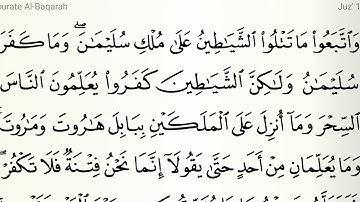 ourate Al-Baqarah Juz' 1
وَٱتَّبَعُوا۟ مَا تَتْلُوا۟ ٱلشَّيَـٰطِينُ عَلَىٰ مُلْكِ سُلَيْمَـٰنَ ۖ وَمَا كَفَرَ
سُلَيْمَـٰنُ وَلَـٰكِنَّ ٱلشَّيَـٰطِينَ كَفَرُوا۟ يُعَلِّمُونَ ٱلنَّاسَ
ٱلسِّحْرَ وَمَآ أُنزِلَ عَلَى ٱلْمَلَكَيْنِ بِبَابِلَ هَـٰرُوتَ وَمَـٰرُوتَ ۚ
وَمَا يُعَلِّمَانِ مِنْ أَحَدٍ حَتَّىٰ يَقُولَآ إِنَّمَا نَحْنُ فِتْنَةٌ فَلَا تَكْفُرْ ۖ